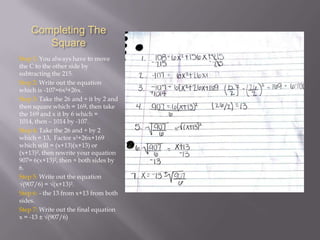 Completing The
Square
Step 1: You always have to move
the C to the other side by
subtracting the 215.
Step 2: Write out the equation
which is -107=6x²+26x.
Step 3: Take the 26 and ÷ it by 2 and
then square which = 169, then take
the 169 and x it by 6 which =
1014, then – 1014 by -107.
Step 4: Take the 26 and ÷ by 2
which = 13, Factor x²+26x+169
which will = (x+13)(x+13) or
(x+13)², then rewrite your equation
907= 6(x+13)², then ÷ both sides by
6.
Step 5: Write out the equation
√(907/6) = √(x+13)².
Step 6: - the 13 from x+13 from both
sides.
Step 7: Write out the final equation
x = -13 ± √(907/6)
1. 108=6x²+156x+215
-215
2. -107 = 6x²+26x
3.
4. 907=6(x+13)² (26/2)=13
6
5. √907 = √(x+13)²
6
6. √907 = x+13
6 -13
-13
7. X=-13±√907
6